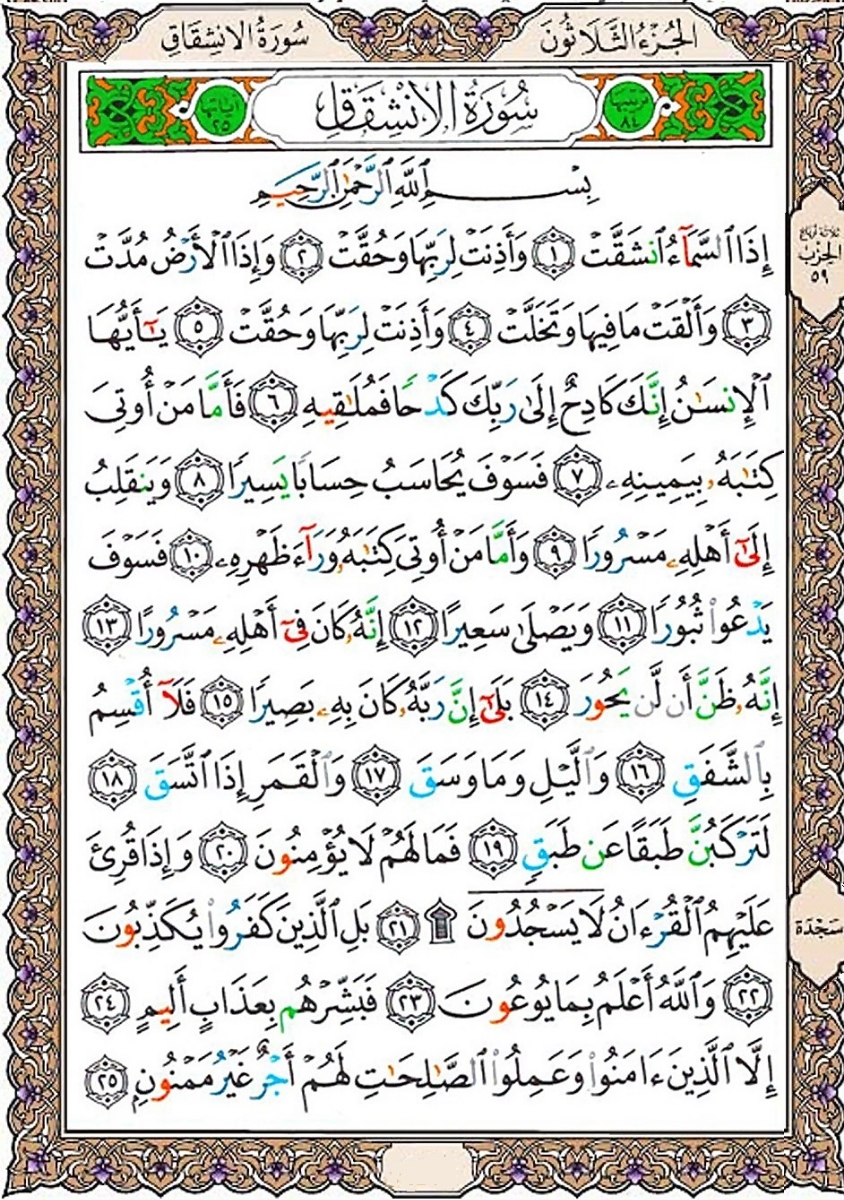 الجُزْءُ الثَّلَاثُونَ
سُورَةُ الانشِقَاقِ
ترتيبها ٨٤
سُورَةُ الِانْشِقَاقِ
آياتها ٢٥
بِسْمِ ٱللَّهِ ٱلرَّحْمَٰنِ ٱلرَّحِيمِ
إِذَا ٱلسَّمَآءُ ٱنشَقَّتْ ١ وَأَذِنَتْ لِرَبِّهَا وَحُقَّتْ ٢ وَإِذَا ٱلْأَرْضُ مُدَّتْ
٣ وَأَلْقَتْ مَا فِيهَا وَتَخَلَّتْ ٤ وَأَذِنَتْ لِرَبِّهَا وَحُقَّتْ ٥ يَٰٓأَيُّهَا
ٱلْإِنسَٰنُ إِنَّكَ كَادِحٌ إِلَىٰ رَبِّكَ كَدْحًا فَمُلَٰقِيهِ ٦ فَأَمَّا مَنْ أُوتِىَ
كِتَٰبَهُۥ بِيَمِينِهِۦ ٧ فَسَوْفَ يُحَاسَبُ حِسَابًا يَسِيرًا ٨ وَيَنقَلِبُ
إِلَىٰٓ أَهْلِهِۦ مَسْرُورًا ٩ وَأَمَّا مَنْ أُوتِىَ كِتَٰبَهُۥ وَرَآءَ ظَهْرِهِۦ ١٠ فَسَوْفَ
يَدْعُوا۟ ثُبُورًا ١١ وَيَصْلَىٰ سَعِيرًا ١٢ إِنَّهُۥ كَانَ فِىٓ أَهْلِهِۦ مَسْرُورًا ١٣
إِنَّهُۥ ظَنَّ أَن لَّن يَحُورَ ١٤ بَلَىٰٓ إِنَّ رَبَّهُۥ كَانَ بِهِۦ بَصِيرًا ١٥ فَلَآ أُقْسِمُ
بِٱلشَّفَقِ ١٦ وَٱلَّيْلِ وَمَا وَسَقَ ١٧ وَٱلْقَمَرِ إِذَا ٱتَّسَقَ ١٨
لَتَرْكَبُنَّ طَبَقًا عَن طَبَقٍ ١٩ فَمَا لَهُمْ لَا يُؤْمِنُونَ ٢٠ وَإِذَا قُرِئَ
عَلَيْهِمُ ٱلْقُرْءَانُ لَا يَسْجُدُونَ ۩ ٢١ بَلِ ٱلَّذِينَ كَفَرُوا۟ يُكَذِّبُونَ
٢٢ وَٱللَّهُ أَعْلَمُ بِمَا يُوعُونَ ٢٣ فَبَشِّرْهُم بِعَذَابٍ أَلِيمٍ ٢٤
إِلَّا ٱلَّذِينَ ءَامَنُوا۟ وَعَمِلُوا۟ ٱلصَّٰلِحَٰتِ لَهُمْ أَجْرٌ غَيْرُ مَمْنُونٍۭ ٢٥
ثلاثة أرباع
الحزب
٥٩
سَجْدَة